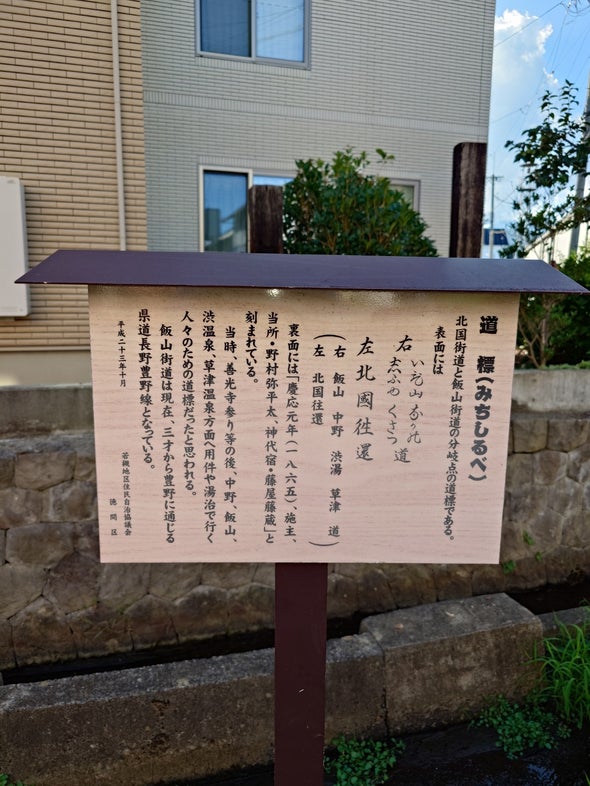 道標(みちしるべ)
北国街道と飯山街道の分岐点の道標である。
表面には
右 いゐ山 なか乃 道
志ぶゆ くさつ
左北國徃還
(右 飯山 中野 渋湯 草津 道)
(左 北国往還)
裏面には「慶応元年(一八六五)、施主、
当所・野村弥平太、神代宿・藤屋藤蔵」と
刻まれている。
当時、善光寺参り等の後、中野、飯山、
渋温泉、草津温泉方面へ用件や湯治で行く
人々のための道標だったと思われる。
飯山街道は現在、三才から豊野に通じる
県道長野豊野線となっている。
平成二十三年十月
若槻地区住民自治協議会
徳間区